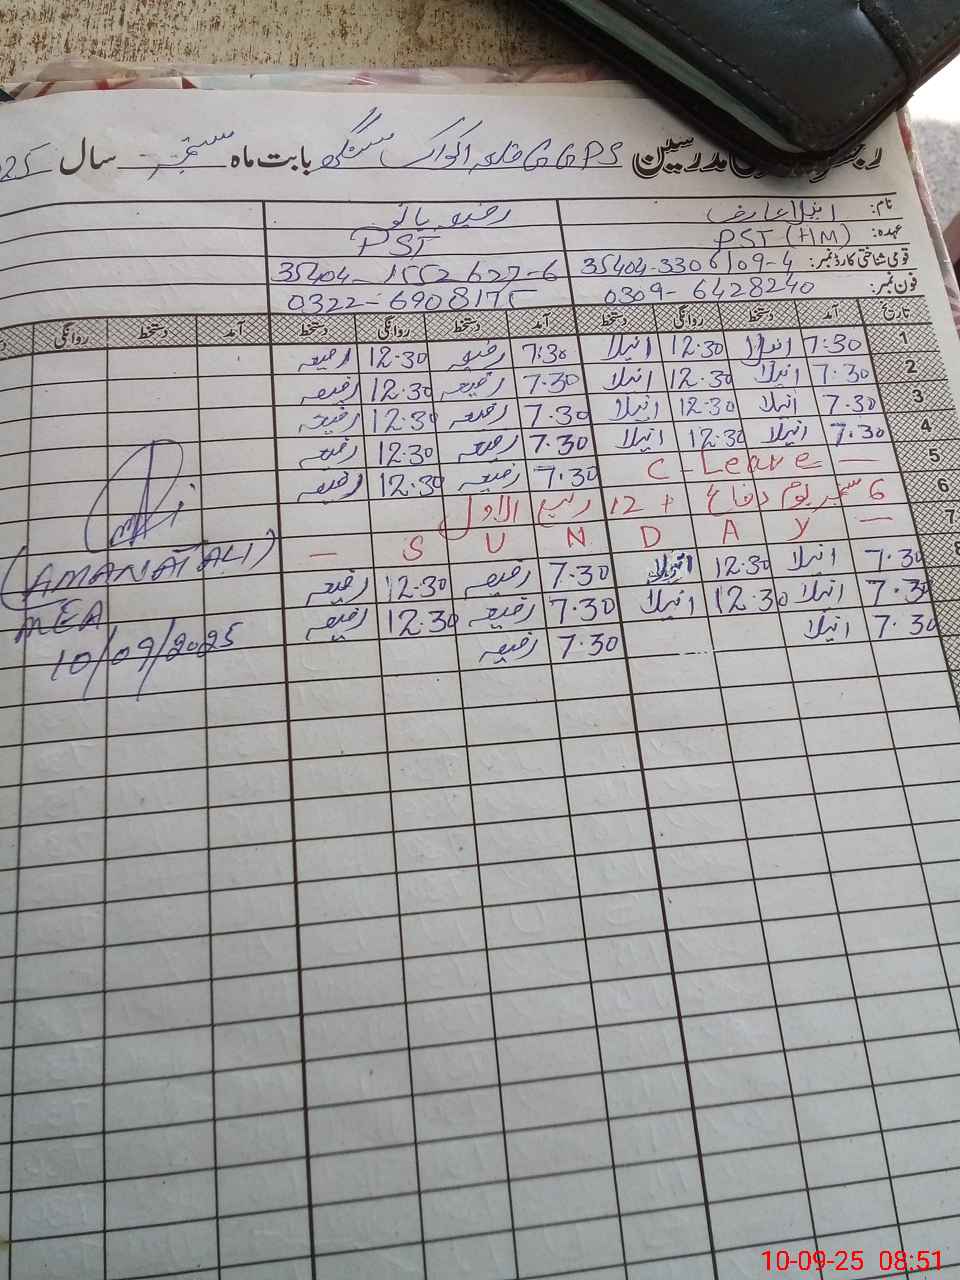 مدرسین GGPS قلعہ سنگھ بابت ماہ ستمبر سال 25
نام: انیلا عارف رضیہ بانو
عہدہ: PST (HM) PST
قومی شناختی کارڈ نمبر: 35404-3306109-4 35404-1552627-6
فون نمبر: 0309-6428240 0322-6908175
تاریخ آمد دستخط روانگی دستخط آمد دستخط روانگی دستخط آمد دستخط روانگی
1 7:30 انیلا 12:30 انیلا 7:30 رضیہ 12:30 رضیہ
2 7.30 انیلا 12:30 انیلا 7.30 رضیہ 12:30 رضیہ
3 7.30 انیلا 12:30 انیلا 7.30 رضیہ 12:30 رضیہ
4 7.30 انیلا 12:30 انیلا 7.30 رضیہ 12:30 رضیہ
5 C-Leave — 7.30 رضیہ 12:30 رضیہ
6 6 ستمبر یوم دفاع + 12 ربیع الاول
7 — S U N D A Y —
8 7.30 انیلا 12:30 انیلا 7.30 رضیہ 12:30 رضیہ
7.30 انیلا 12:30 انیلا 7.30 رضیہ 12:30 رضیہ
7.30 انیلا 7.30 رضیہ
(AMANAT ALI)
MEA
10/09/2025
10-09-25 08:51